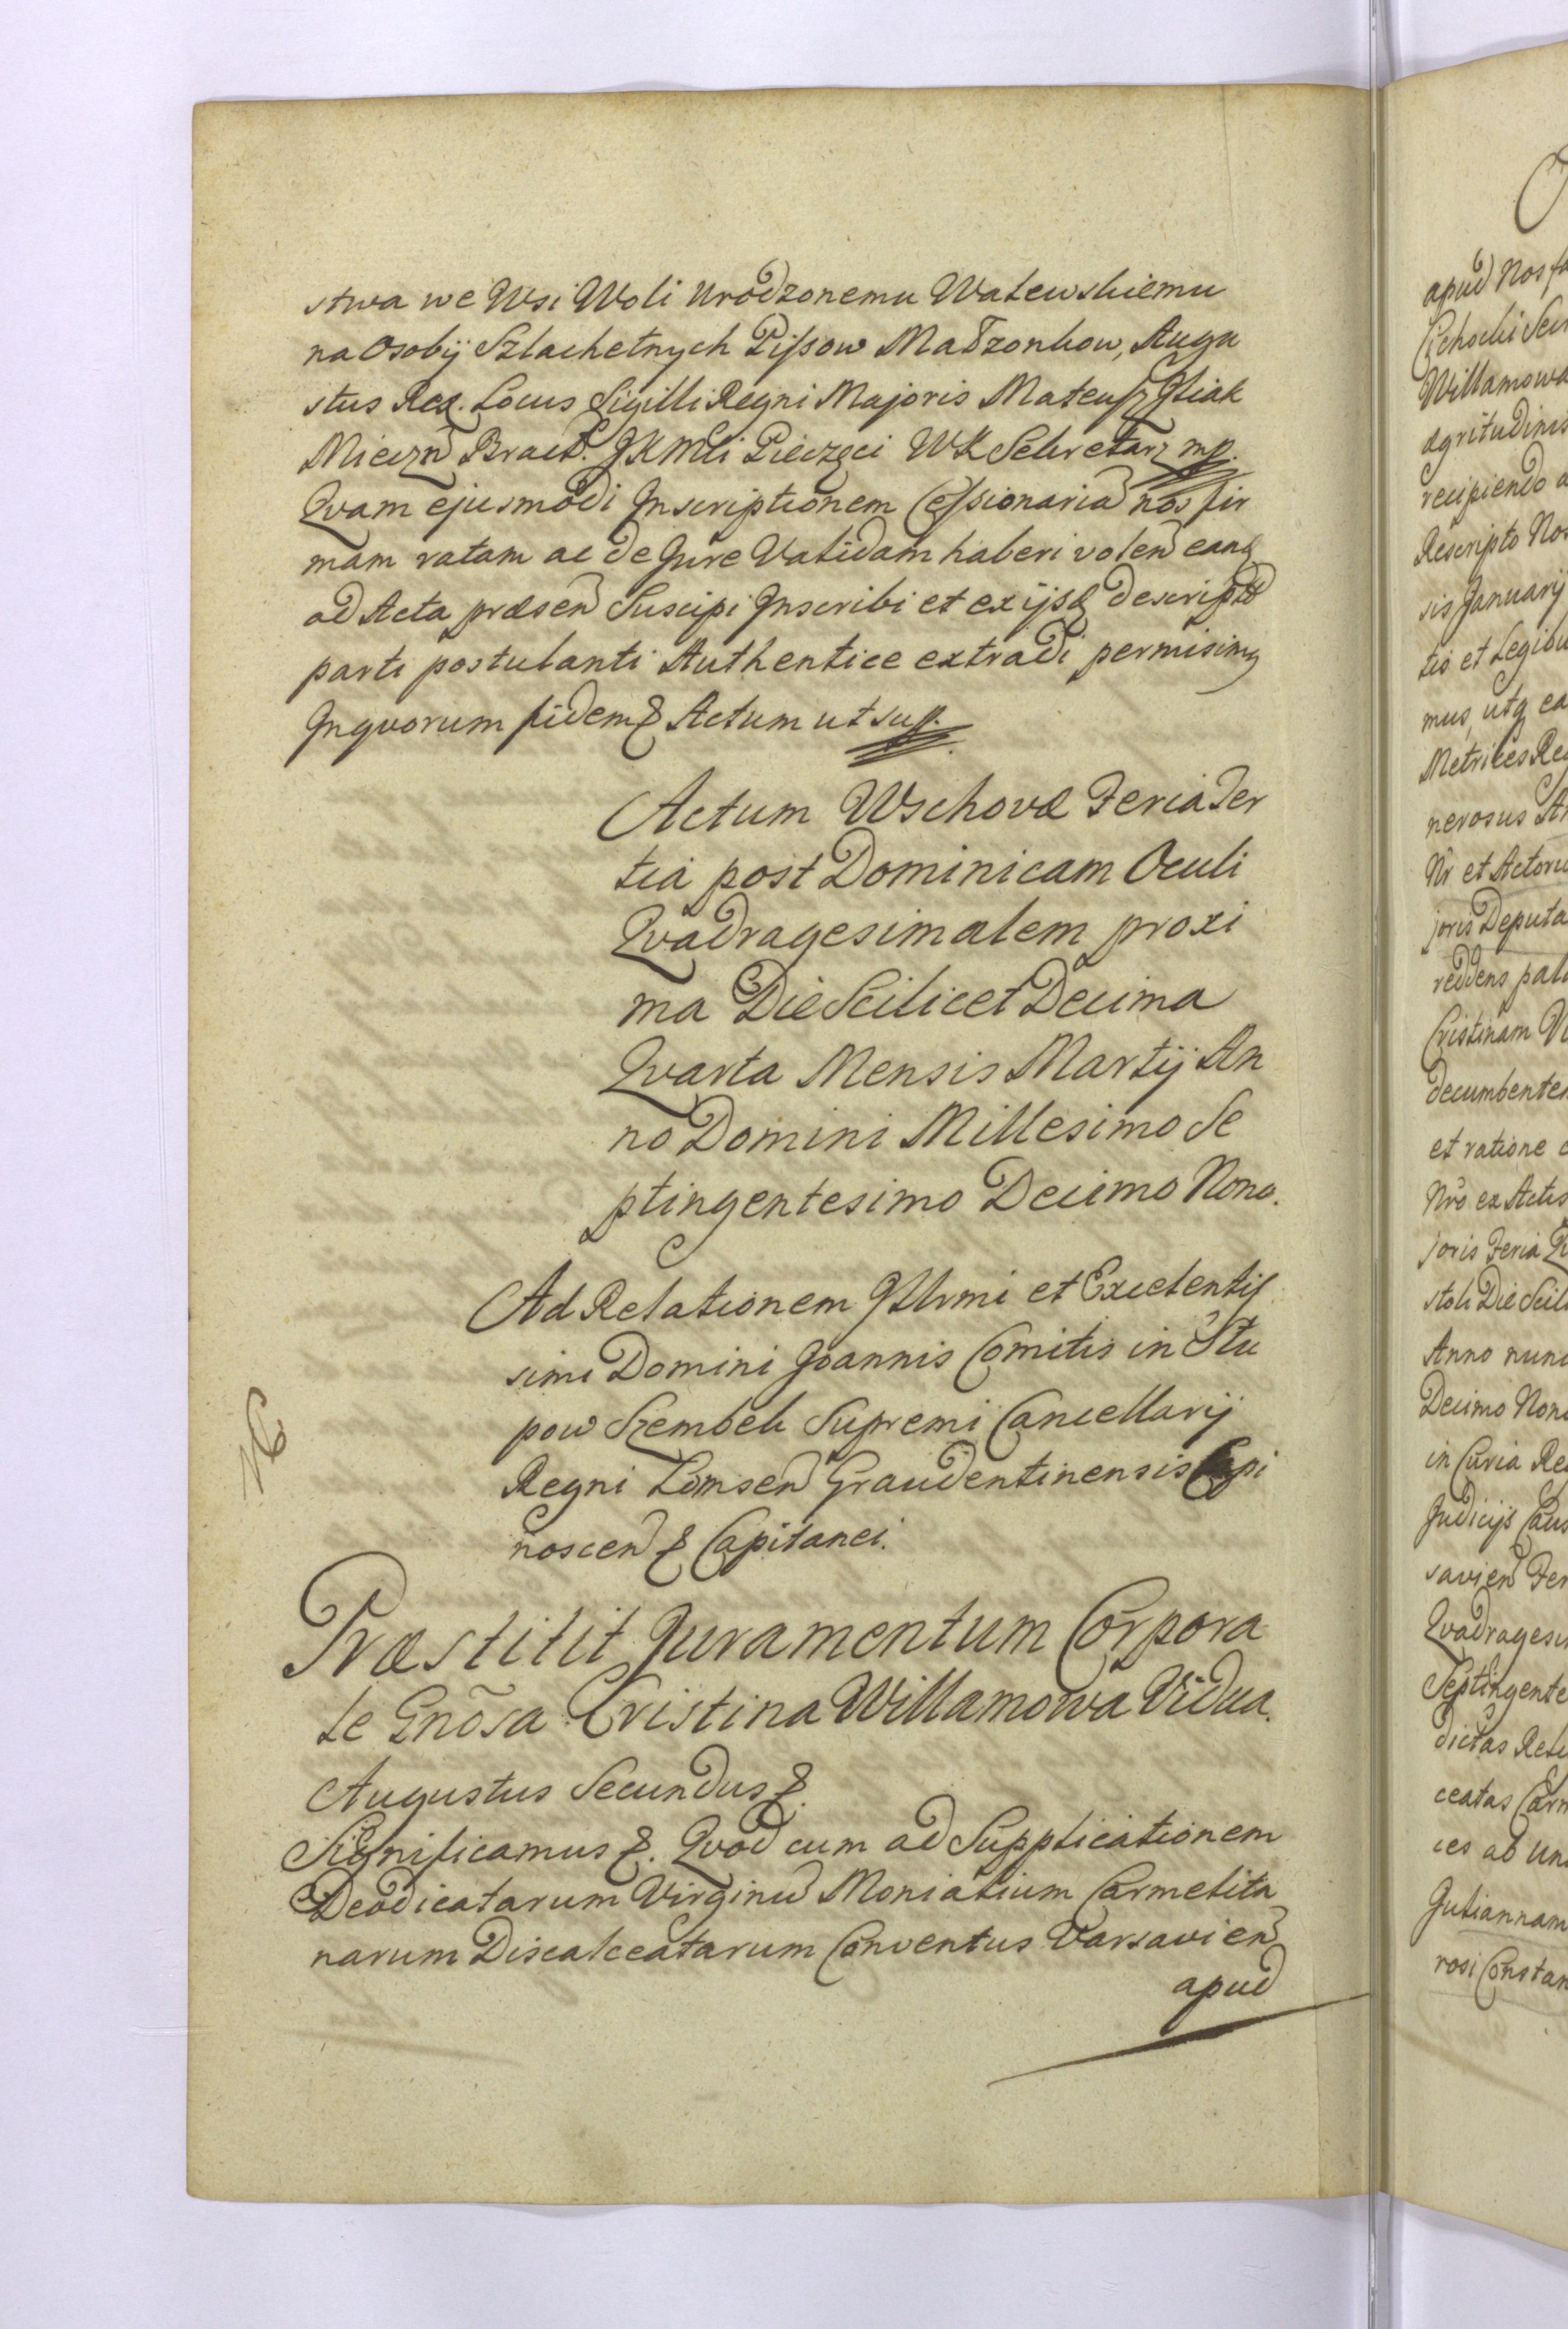 stwa we Wsi Woli Urodzonemu Walewskiemu
na Osobÿ Szlachetnych Pissow Małzonkow, Augu
stus Rex. Locus Sigilli Regni Majoris Mateusz
Mieczn Bracł. JKMSci Pieczęci WK Sekretarz mp.
Qvam ejusmodi Inscriptionem Cessionariã nos fir
mam ratam ac de Jure Validam haberi volen eanq
ad Acta præsen Suscipi Inscribi et ex ijsq descriptã
parti postulanti Authentice extradi permisimg
Inqvorum fidem & Actum ut sup.
Actum Wschovæ Feria Ter
tia post Dominicam Oculi
Qvadragesimalem proxi
ma Die Scilicet Decima
Qvarta Mensis Martij An
no Domini Millesimo Se
ptingentesimo Decimo Nono.
Ad Relationem Jllrmi et Excelentis
simi Domini Joannis Comitis in Słu
pow Szembek Supremi Cancellarij
Regni Lomsen Graudentinensis
noscen & Capitanei.
NC
Præstitit Juramentum Corpora
le Gnõsa Cristina Willamowa Vidua.
Augustus Secundus &.
Significamus &. Qvod cum ad Supplicationem
Deodicatarum Virginũ Monialium Carmelita
narum Discalceatarum Conventus Varsavien
apud
apud Nos fa
Cichocki Secr
Willamowa
ægritudinis
recipiendo a
Rescripto Nos
sis Januarij
tis et Legibu
mus, utq ea
Metrices Reg
nerosus An
Nr et Actoru
joris Deputa
reddens pala
Cristinam Vi
decumbenter
et ratione c
Nro ex Actis
joris Feria Qv
stoli Die Scili
Anno nunc
Decimo Nono
in Curia Reg
Judicijs Caus
savien Fer
Qvadragesi
Septingente
dictas Rel
ceatas Carm
ces ab un
Juliannam
rosi Constan